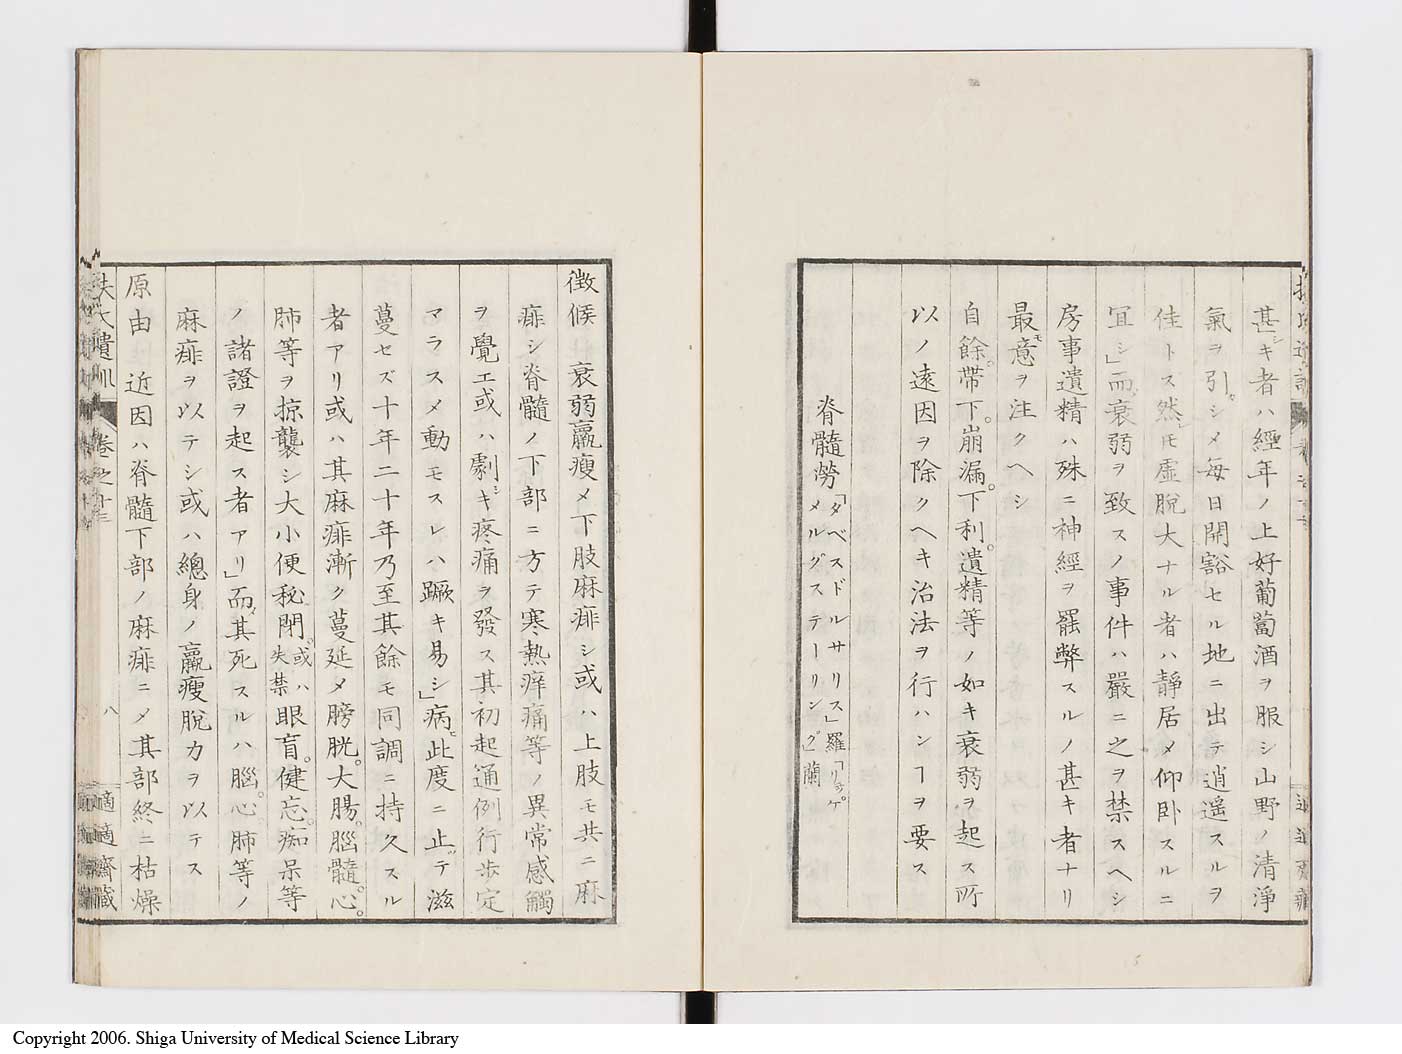 甚シキ者ハ經年ノ上好葡萄酒ヲ服シ山野ノ清淨
氣ヲ引シメ每日開豁セル地ニ出テ逍遥スルヲ
佳トス然𪜈虚脫大ナル者ハ靜居メ仰卧スルニ
宜シ」而衰弱ヲ致スノ事件ハ嚴ニ之ヲ禁スヘシ
房事遺精ハ殊ニ神經ヲ罷弊スルノ甚キ者ナリ
最モ意ヲ注クヘシ
自餘帶下。崩漏。下利。遺精等ノ如キ衰弱ヲ起ス所
以ノ遠因ヲ除クヘキ治法ヲ行ハンヿヲ要ス
脊髓勞「タベスドルサリス」羅「リュッゲ
メルグステーリング」蘭
徵候 衰弱羸瘦メ下肢麻痱シ或ハ上肢モ共ニ麻
痱シ脊髓ノ下部ニ方テ寒熱痒痛等ノ異常感觸
ヲ覺エ或ハ劇シキ疼痛ヲ發ス其初起通例行步定
マラスメ動モスレハ蹶キ易シ」病此度ニ止テ滋
蔓セズ十年二十年乃至其餘モ同調ニ持久スル
者アリ或ハ其麻痱漸ク蔓延メ膀胱。大腸。腦髓。心。
肺等ヲ掠襲シ大小便秘閉。或ハ失禁眼盲。健忘。痴呆等
ノ諸證ヲ起ス者アリ」而其死スルハ腦。心。肺等ノ
麻痱ヲ以テシ或ハ總身ノ羸瘦脫力ヲ以テス
原由 近因ハ脊髓下部ノ麻痱ニメ其部終ニ枯燥
扶氏遺訓 卷之十三 八 適適齋藏